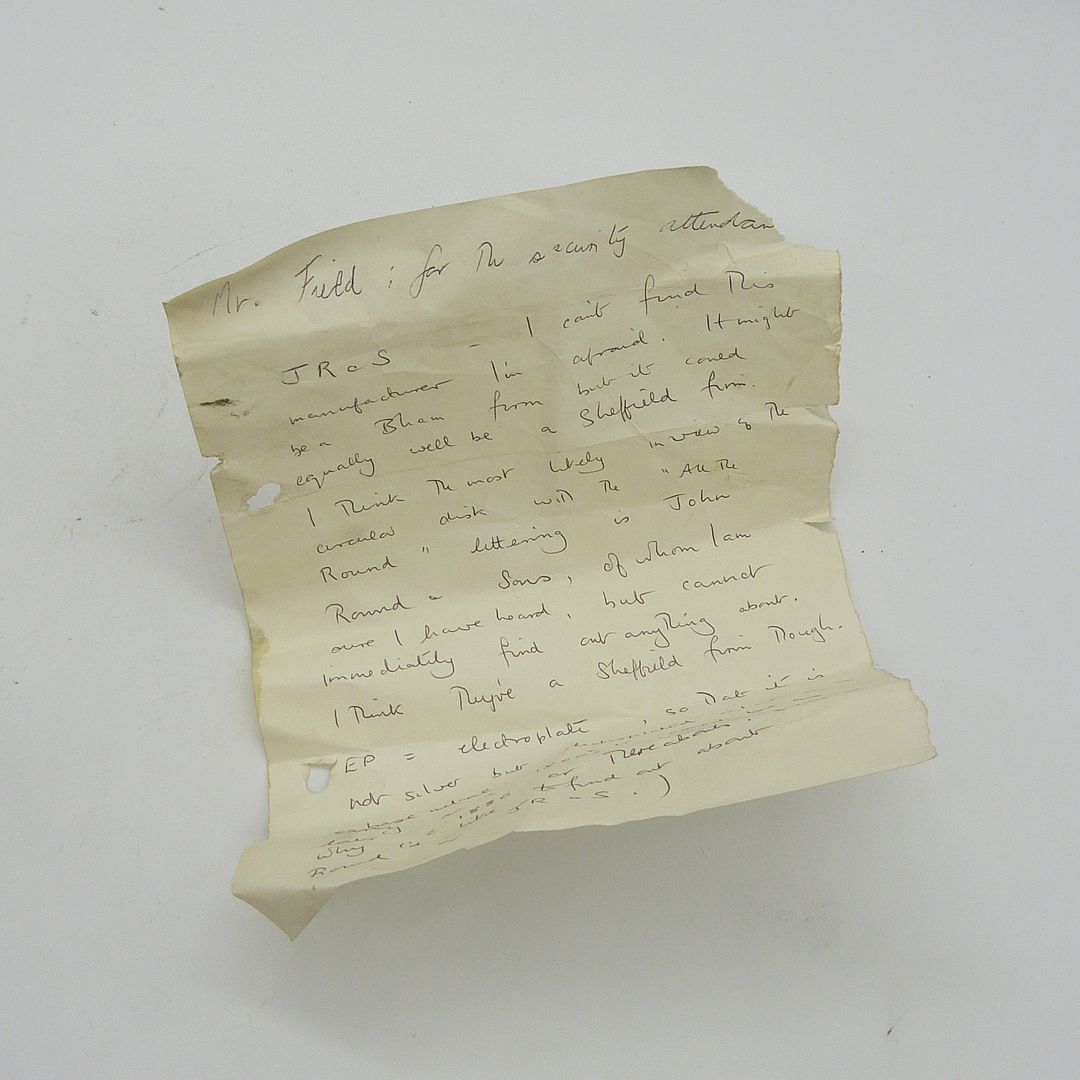 Mr. Field : for the security attendan
JR & S - I can't find this
manufacturer I'm afraid. It might
be a Bham firm but it could
equally well be a Sheffield firm.
I think the most likely in view of the
circular disk with the " All the
Round " lettering is John
Round & Sons, of whom I am
sure I have heard, but cannot
immediately find out anything about.
I think they're a Sheffield firm though.
EP = electroplate, so that it is
not silver but
or thereabouts
why to find out about
Round is JR & S.)